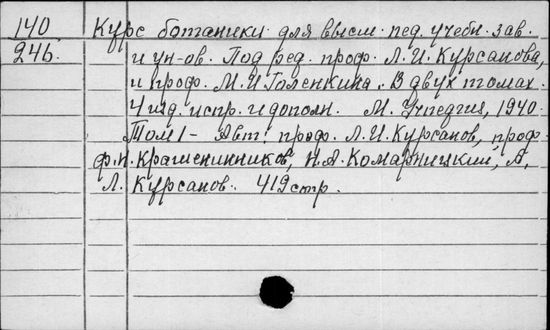 140 Курс ботаники для высш. пед. учебн. зав.
246. и ун-ов. Под ред. проф. Л.И. Курсанова,
и проф. М.И. Голенкина. В двух томах.
4 изд. испр. и дополн. М. Учпедгиз, 1940.
Том 1 - Авт: проф. Л.И. Курсанов, проф.
Ф.Н. Крашенинников, Н.А. Комарницкий, А.
Л. Курсанов. 419 стр.